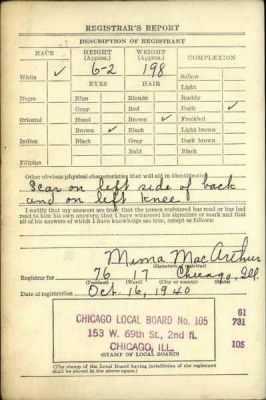 REGISTRAR'S REPORT
DESCRIPTION OF REGISTRANT
RACE HEIGHT (Approx.) WEIGHT (Approx.) COMPLEXION
White ✓ 6-2 198 Sallow
EYES HAIR Light
Negro Blue Blonde Ruddy
Gray Red Dark ✓
Oriental Hazel Brown ✓ Freckled
Brown ✓ Black Light brown
Indian Black Gray Dark brown
Bald Black
Filipino
Other obvious physical characteristics that will aid in identification
Scar on left side of back
and on left knee
I certify that my answers are true; that the person registered has read or has had
read to him his own answers; that I have witnessed his signature or mark and that
all of his answers of which I have knowledge are true, except as follows:
Mima MacArthur
(Signature of registrar)
Registrar for 76 17 Chicago, Ill.
(Precinct) (Ward) (City or county) (State)
Date of registration Oct. 16, 1940
CHICAGO LOCAL BOARD No. 105
153 W. 69th St., 2nd fl.
CHICAGO, ILL.
61
731
105
(STAMP OF LOCAL BOARD)
(The stamp of the Local Board having jurisdiction of the registrant
shall be placed in the above space.)